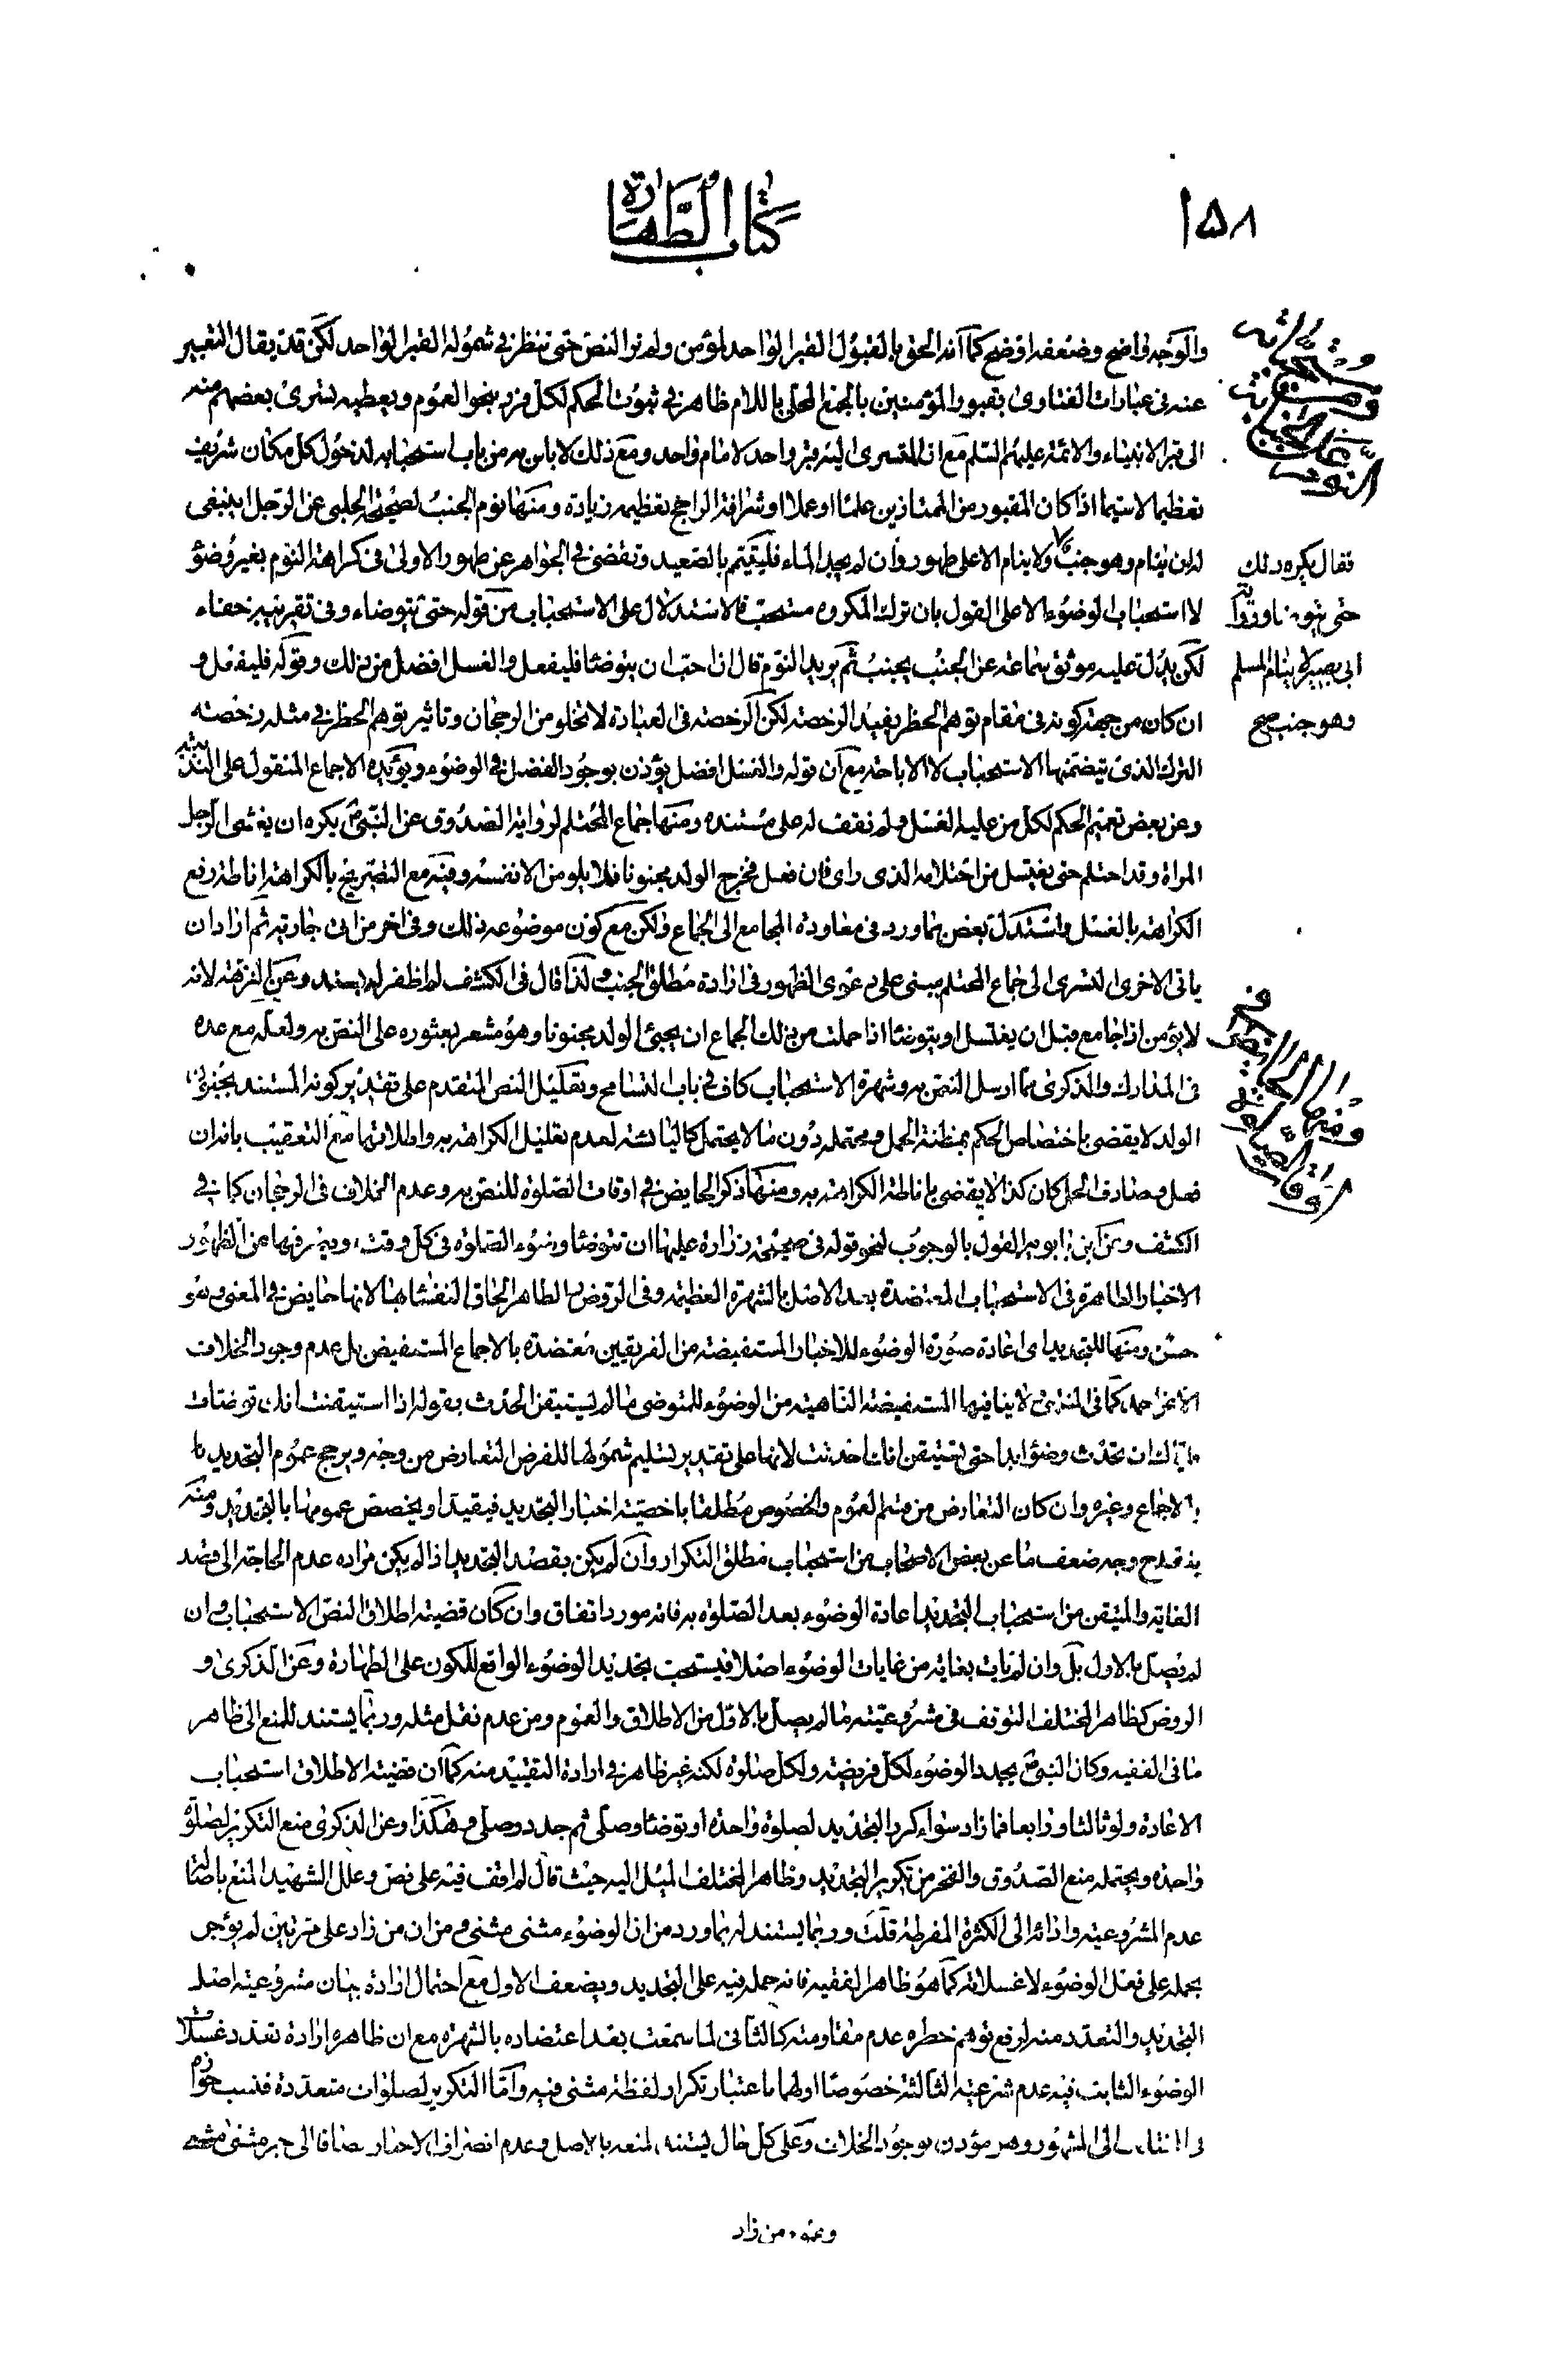 ١٥٨
كتاب الطهارة
والوجه واضح وضعفه اوضح كما آنه الحق بالقبول القبر الواحد لمؤمن ولم نر النص حتى ننظر في شموله القبر الواحد لكن قد يقال التعبير
عنه في عبارات الفتاوى بقبور المؤمنين بالجمع المحلى باللام ظاهر في ثبوت الحكم لكل فرد بنحو العموم ويعطيه تسرى بعضهم منه
الى قبر الانبياء والائمة عليهم السلم مع ان المتسرى اليه قبر واحد لامام واحد ومع ذلك لا باس به من باب استحبابه لدخول كل مكان شريف
تعظيما لاسيما اذا كان المقبور من الممتازين علما او عملا او شرافة الراجح تعظيمه زيادة ومنها نوم الجنب لصحيحة الحلبي عن الرجل اينبغي
له ان ينام وهو جنب ولا ينام الا على طهور وان لم يجد الماء فليتيمم بالصعيد وتقضى في الجواهر عن طهور الاولى في كراهة النوم بغير وضؤ
لا استحباب الوضوء الا على القول بان ترك المكروه مستحب فالاستدلال على الاستحباب من قوله حتى يتوضاء وفي تقريبه خفاء
لكن يدل عليه موثق سماعة عن الجنب يجنب ثم يريد النوم قال ان احب ان يتوضا فليفعل والغسل افضل من ذلك وقوله فليفعل و
ان كان من جهة كونه في مقام توهم الحظر يفيد الرخصة لكن الرخصة في العبادة لا تخلو من الرجحان وتاثير توهم الحظر في مثله رخصة
الترك الذي يتضمنها الاستحباب لا الاباحة مع ان قوله والغسل افضل يؤذن بوجود الفضل في الوضوء ويؤيده الاجماع المنقول على الندبية
وعن بعض تعميم الحكم لكل من عليه الغسل ولم نقف له على مستنده ومنها جماع المحتلم لرواية الصدوق عن النبي ص يكره ان يغشى الرجل
المراة وقد احتلم حتى يغتسل من احتلامه الذى راى فان فعل فخرج الولد مجنونا فلا يلومن الا نفسه وفيه مع التصريح بالكراهة اناطة رفع
الكراهة بالغسل واستدل بعض بما ورد في معاودة المجامع الى الجماع ولكن مع كون موضوعه ذلك وفي اخر من اتى جاريته ثم اراد ان
ياتى الاخرى التسرى الى جماع المحتلم مبنى على دعوى الظهور في ارادة مطلق الجنب ولذا قال في الكشف لم اظفر له بسند وعن النزهة لانه
لا يؤمن اذا جامع قبل ان يغتسل او يتوضا اذا حملت من ذلك الجماع ان يجئ الولد مجنونا وهو مشعر بعثوره على النص به ولعله مع عده
في المدارك والذكرى مما ارسل النص به وشهرة الاستحباب كاف في باب التسامح وتعليل النص المتقدم على تقدير كونه المستند بجنون
الولد لا يقضى باختصاص الحكم بمظنة الحمل ومحتمله دون ما لا يحتمل كاليائسة لعدم تعليل الكراهة به واطلاقها نعم التعقيب بانه ان
فعل وصادف الحمل كان كذا لا يقضى باناطة الكراهة به ومنها ذكر الحايض في اوقات الصلوة للنص به وعدم الخلاف في الرجحان كما في
الكشف وعن ابن بابويه القول بالوجوب لنحو قوله في صحيحة زرارة عليها ان تتوضا وضوء الصلوة في كل وقت ويصرفها عن الظهور
الاخبار الظاهرة في الاستحباب المعتضدة بعد الاصل بالشهرة العظيمة وفي الروض الظاهر الحاق النفساء بها لانها حايض في المعنى وهو
حسن ومنها للتجديد اى اعادة صورة الوضوء للاخبار المستفيضة من الفريقين معتضدة بالاجماع المستفيض بل عدم وجود الخلاف
الا عن احمد كما في المنتهى لا ينافيها المستفيضة الناهية من الوضوء للمتوضى ما لم يستيقن الحدث بقوله اذا استيقنت انك توضات
فاياك ان تحدث وضؤا ابدا حتى تستيقن انك احدثت لانها على تقدير تسليم شمولها للفرض التعارض من وجه ويرجح عموم التجديد
بالاجماع وغيره وان كان التعارض من قسم العموم والخصوص مطلقا باخصية اخبار التجديد فيقيد او يخصص عمومها بالتجديد ومنه
ينقدح وجه ضعف ما عن بعض الاصحاب من استحباب مطلق التكرار وان لم يكن بقصد التجديد اذا لم يكن مراده عدم الحاجة الى قصد
الغاية والمتيقن من استحباب التجديد اعادة الوضوء بعد الصلوة به فانه مورد اتفاق وان كان قضية اطلاق النص الاستحباب وان
لم يصل بالاول بل وان لم يات بغاية من غايات الوضوء اصلا فيستحب تجديد الوضوء الواقع للكون على الطهارة وعن الذكرى و
الروض كظاهر المختلف التوقف في مشروعيته ما لم يصل بالاول من الاطلاق والعموم ومن عدم نقل مثله وربما يستند للمنع الى ظاهر
ما في الفقيه وكان النبي ص يجدد الوضوء لكل فريضة ولكل صلوة لكنه غير ظاهر في ارادة التقييد منه كما ان قضية الاطلاق استحباب
الاعادة ولو ثالثا ورابعا فما زاد سواء كرر التجديد لصلوة واحدة او توضا وصلى ثم جدد وصلى وهكذا وعن الذكرى منع التكرير لصلوة
واحدة ويحتمله منع الصدوق والفخر من تكرير التجديد وظاهر المختلف الميل اليه حيث قال لم اقف فيه على نص وعلل الشهيد المنع باصالة
عدم المشروعية واذائه الى الكثرة المفرطة قلت وربما يستند له بما ورد من ان الوضوء مثنى مثنى ومن ان من زاد على مرتين لم يؤجر
بحمله على فعل الوضوء لا غسلاته كما هو ظاهر الفقيه فانه حمله فيه على التجديد ويضعف الاول مع احتمال ارادة بيان مشروعية اصل
التجديد والتعدد منه لرفع توهم خطره عدم مقاومته كالثاني لما سمعت بعد اعتضاده بالشهرة مع ان ظاهره ارادة تعدد غسلات
الوضوء الثابت فيه عدم شرعية الثالثة خصوصا اولهما باعتبار تكرار لفظة مثنى فيه وآما التكرير لصلوات متعددة فنسب جوازه
الى المشهور وهو مؤذن بوجود الخلاف وعلى كل حال يستند لمنعه بالاصل وعدم انصراف الاخبار مضافا الى خبر مثنى مثنى
من زاد
ومن الثانية
النوم
فقال يكره ذلك
حتى يتوضا ورواية
ابى بصير لا ينام المسلم
وهو جنب صح
ومنها الحايض في
اوقات الصلوة